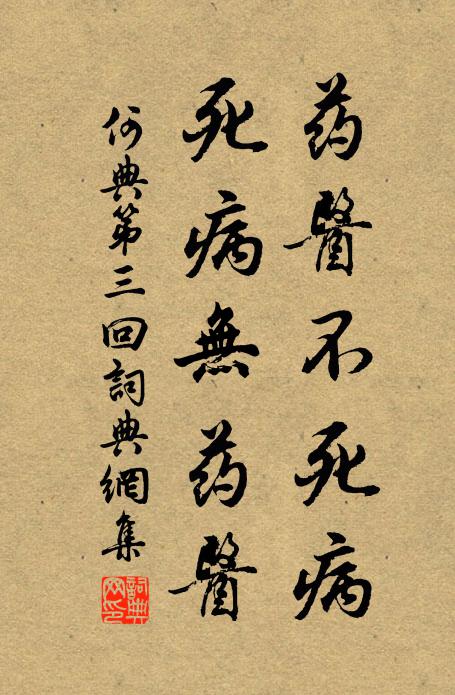 药醫不死病
死病無药醫
何典第三回詞典網集
詞典網印